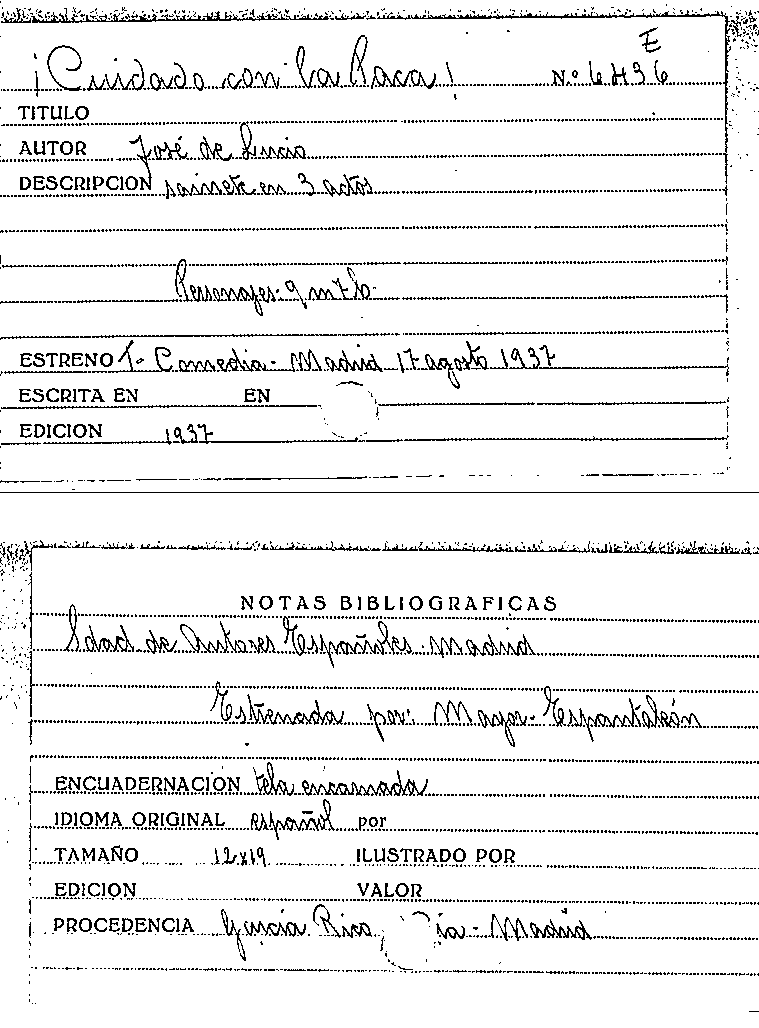 E
¡Cuidado con la Paca! Nº 6436
TITULO
AUTOR José de Lucio
DESCRIPCION sainete en 3 actos
Personajes: 9 m 7 h.
ESTRENO T. Comedia - Madrid 17 agosto 1937
ESCRITA EN EN
EDICION 1937
NOTAS BIBLIOGRAFICAS
Sdad de Autores Españoles. Madrid
Estrenada por: Mayor-Espantaleón
ENCUADERNACION tela encarnada
IDIOMA ORIGINAL español por
TAMAÑO 12x19 ILUSTRADO POR
EDICION VALOR
PROCEDENCIA García Rico, ía - Madrid